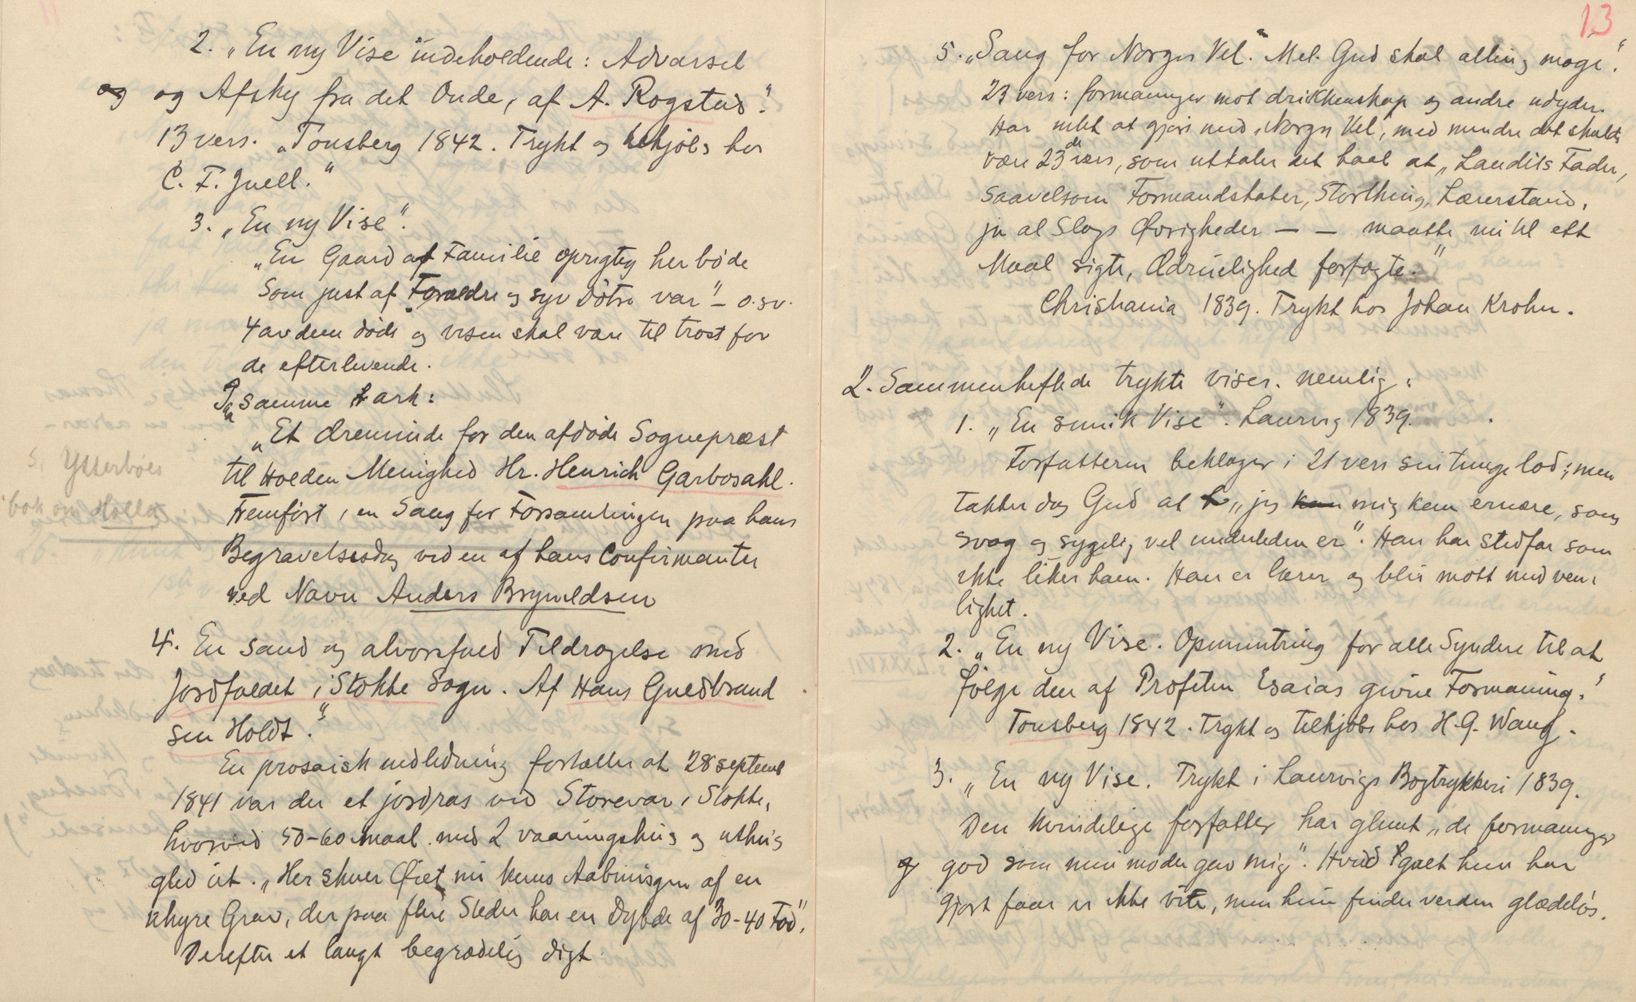 2. „En ny Vise indeholdende: Advarsel
og Afsky fra det Onde, af A. Rogstad."
13 vers. „Tønsberg 1842. Trykt og tilkjøbs hos
C. F. Juell."
3. „En ny Vise".
„En Gaard af Familie oprigtig her bode
Som just af Forældre og syv Døtre var" – o.sv.
4 av dem døde og visen skal være til trøst for
de efterlevende.
I samme ark:
„Et Æreminde for den afdøde Sognepræst
til Holden Menighed Hr. Henrich Garbosahl.
Fremført, en Sang for Forsamlingen paa hans
Begravelsesdag ved en af hans Confirmanter
ved Navn Anders Brynildsen
s. Ytterbøes
bok om Holla
4. En sand og alvorsfuld Tildragelse med
Jordfaldet i Stokke Sogn. Af Hans Guldbrand
sen Holdt."
En prosaisk indledning fortæller at 28 septemb
1841 var der et jordras ved Storevar i Stokke,
hvorved 50-60 maal med 2 vaaningshus og uthus
gled ut. „Her skuer Øiet nu kuns Aabningen af en
uhyre Grav, der paa flere Steder har en Dybde af 30-40 Fod".
Derefter et langt begrædelig digt.
13
5. „Sang for Norges Vel." Mel. Gud skal alting mage".
23 vers: formaninger mot drikkenskap og andre udyder.
Har intet at gjøre med „Norges Vel", med mindre det skulde
være 23de vers, som uttaler det haab at „Landets Fader,
saavelsom Formandskaber, Storthing, Lærerstand,
ja al Slags Øvrigheder – – maatte nu til ett
Maal sigte, Ædruelighed forfægte."
Christiania 1839. Trykt hos Johan Krohn.
2. Sammenheftede trykte viser. nemlig:
1. „En smuk Vise". Laurvig 1839.
Forfatteren beklager i 21 vers sin tunge lod; men
takker dog Gud at „jeg mig kan ernære, som
svag og sygelig vel underleden er". Han har stedfar som
ikke liker ham. Han er lærer og blir møtt med ven-
lighet.
2. „En ny Vise. Opmuntring for alle Syndere til at
følge den af Profeten Esaias givne Formaning."
Tønsberg 1842. Trykt og tilkjøbs hos H. G. Wang.
3. „En ny Vise. Trykt i Laurvigs Bogtrykkeri 1839.
Den kvindelige forfatter har glemt „de formaninger
god som min moder gav mig". Hvad galt hun har
gjort faar vi ikke vite, men hun finder verden glædeløs.